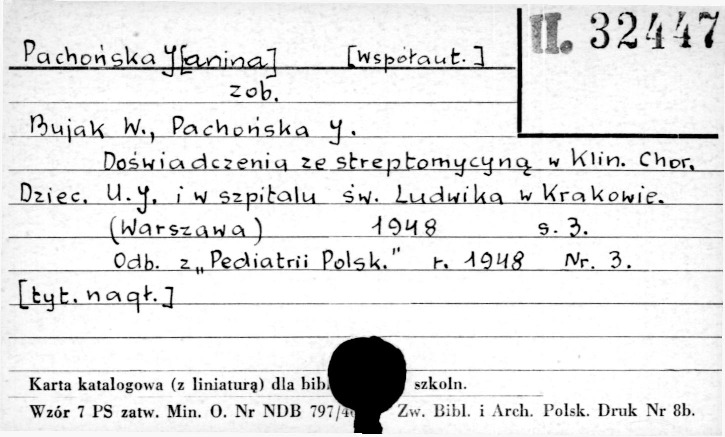 II. 32447
Pachońska J[anina] [współaut.]
zob.
Bujak W., Pachońska J.
Doświadczenia ze streptomycyną w Klin. Chor.
Dziec. U.J. i w szpitalu św. Ludwika w Krakowie.
(Warszawa) 1948 s. 3.
Odb. z „Pediatrii Polsk." r. 1948 Nr. 3.
[tyt. nagł.]
Karta katalogowa (z liniaturą) dla szkoln.
Wzór 7 PS zatw. Min. O. Nr NDB Zw. Bibl. i Arch. Polsk. Druk Nr 8b.